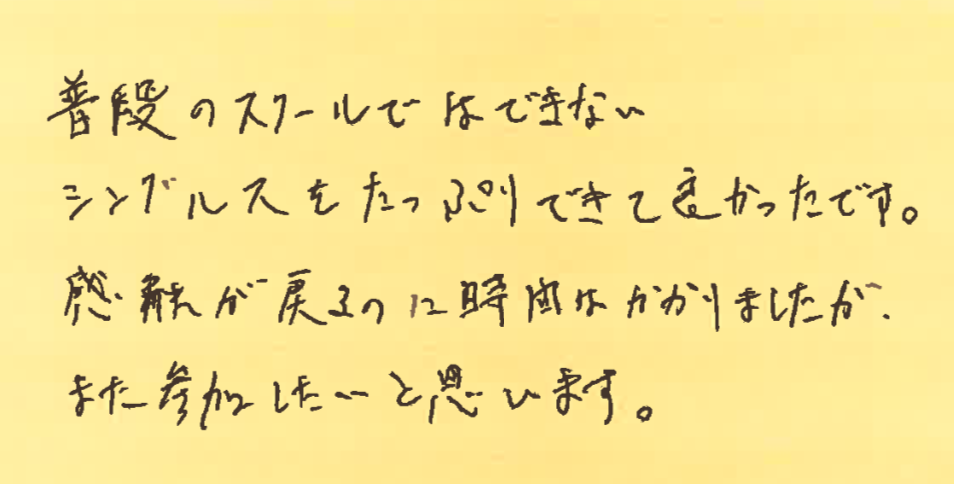 普段のスクールではできない
シングルスをたっぷりできて良かったです。
感触が戻るのに時間はかかりましたが、
また参加したいと思います。